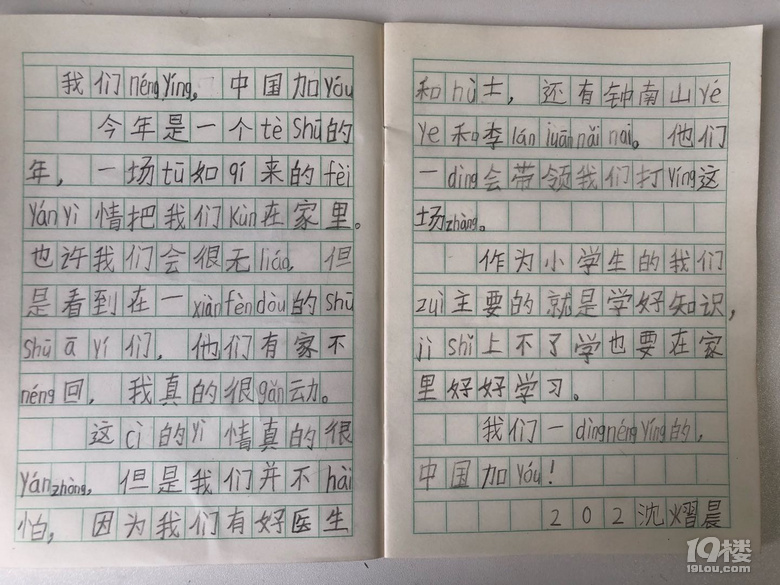 我们néngyíng，中国加yóu
今年是一个tè shū的
年，一场tū如qí来的fèi
yán yì情把我们kùn在家里。
也许我们会很无liáo，但
是看到在一xiàn fèn dòu的shū
shū ā yí们，他们有家不
néng回，我真的很gǎn动。
这cì的yì情真的很
yán zhòng，但是我们并不hài
怕，因为我们有好医生
和hù士，还有钟南山yé
ye和李lán juān nǎi nai。他们
一dìng会带领我们打yíng这
场zhàng。
作为小学生的我们
zuì主要的就是学好知识，
jì shǐ上不了学也要在家
里好好学习。
我们一dìng néng yíng的，
中国加yóu！
202沈熠晨
19楼
19lou.com